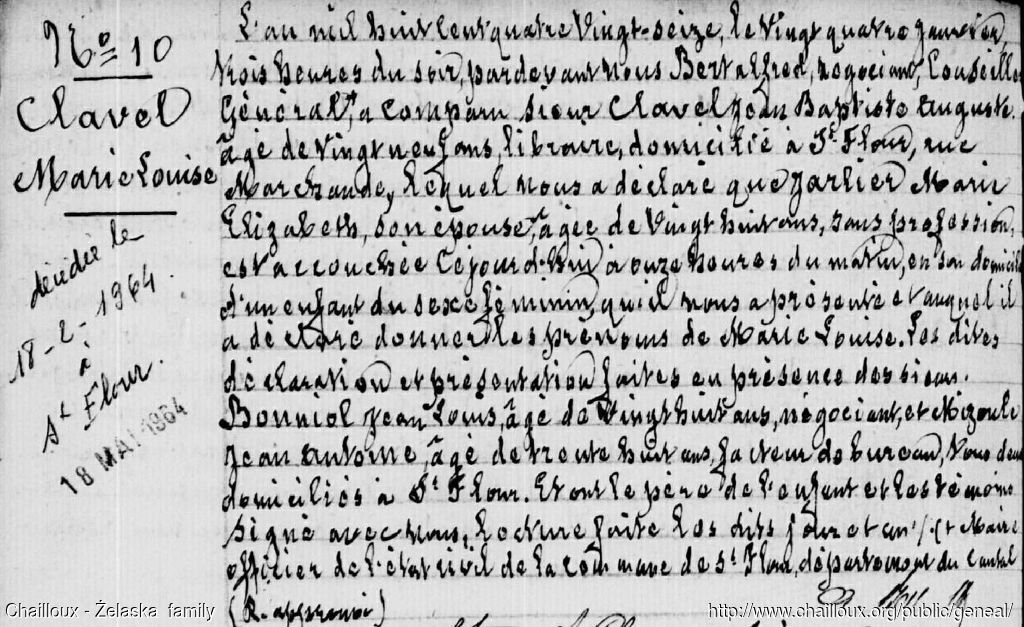 N° 10
Clavel
Marie Louise
décédée le
18-2-1964
à
St Flour.
18 MAI 1964
L'an mil huit cent quatre vingt-seize, le vingt quatre janvier,
trois heures du soir, pardevant nous Bert Alfred, négociant, Conseiller
Général, a comparu sieur Clavel Jean Baptiste Auguste,
âgé de vingt neuf ans, libraire, domicilié à St Flour, rue
Marchande, lequel nous a déclaré que Jarlier Marie
Elizabeth, son épouse, âgée de vingt huit ans, sans profession,
est accouchée cejourd'hui à onze heures du matin, en son domicile
d'un enfant du sexe féminin, qu'il nous a présenté et auquel il
a déclaré donner les prénoms de Marie Louise. Les dites
déclaration et présentation faites en présence des sieurs.
Bonniol Jean Louis, âgé de vingt huit ans, négociant, et Mizoule
Jean Antoine, âgé de trente huit ans, facteur de bureau, tous deux
domiciliés à St Flour. Et ont le père de l'enfant et les témoins
signé avec nous, lecture faite les dits jour et an / . Maire
officier de l'état civil de la commune de St Flour, département du Cantal
Chailloux - Żelaska family
http://www.chailloux.org/public/geneal/